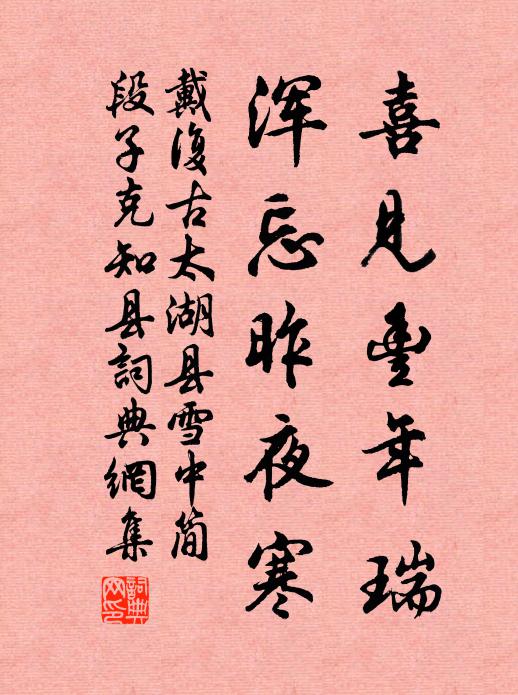 喜見豐年瑞
浑忘昨夜寒
戴復古太湖县雪中简
段子克知县詞典網集
詞典